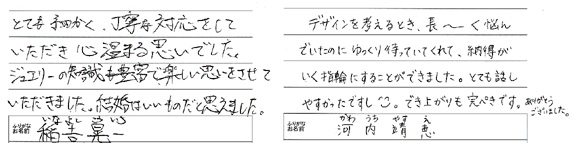 とても細かく、丁寧な対応をして
いただき心温まる思いでした。
ジュエリーの知識も豊富で楽しい思いをさせて
いただきました。結婚はいいものだと思えました。
ふりがな
お名前
いなよし こういち
稲吉 晃一
デザインを考えるとき、長〜く悩ん
でいたのにゆっくり待っていてくれて、納得が
いく指輪にすることができました。とても話し
やすかったですし。でき上がりも完ぺきです。ありがとう
ございました。
ふりがな
お名前
かわ うち やす え
河内 靖恵